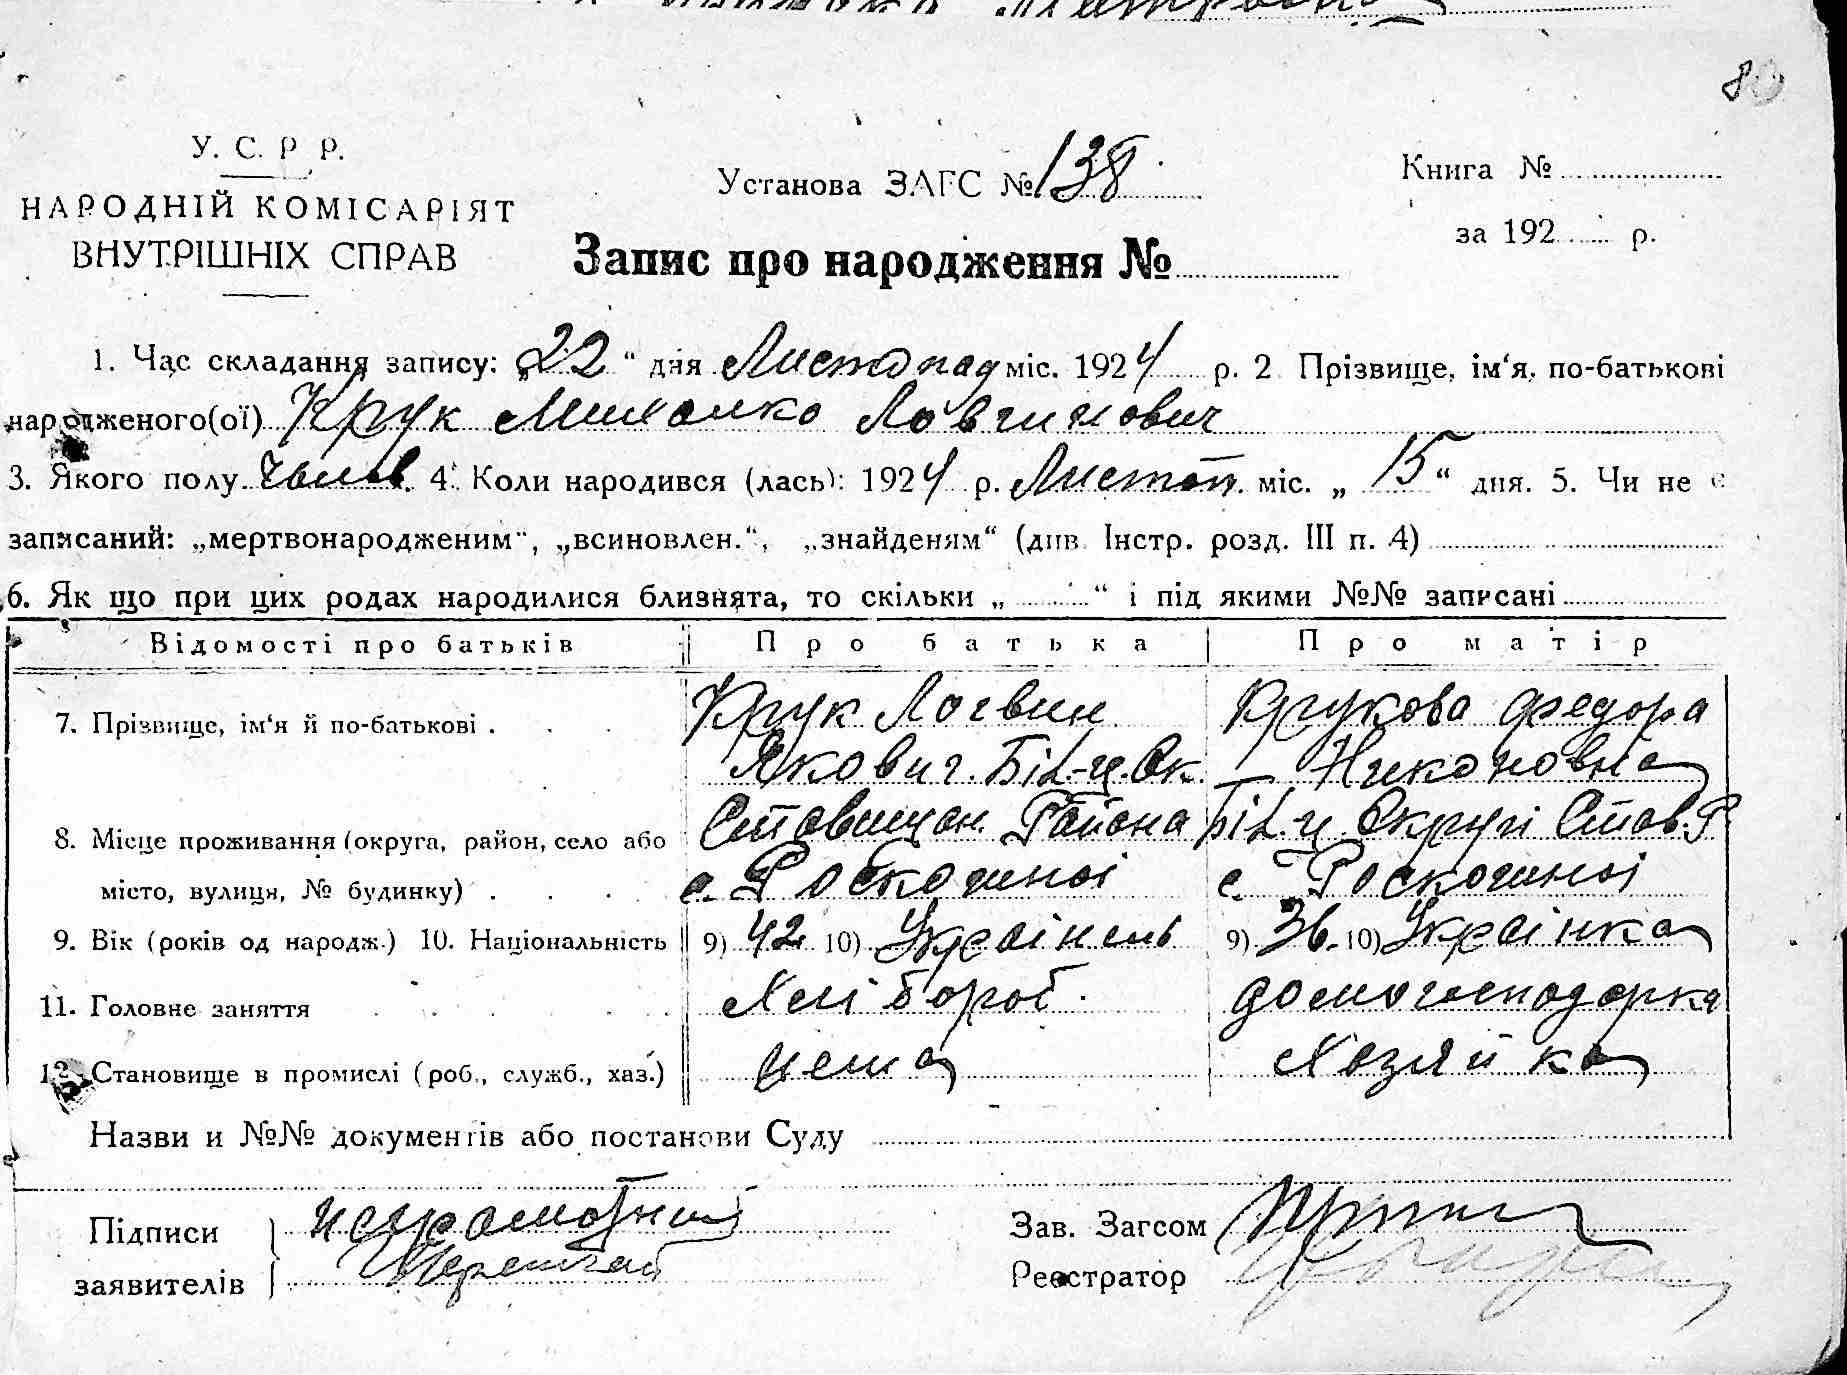 8
У. С. Р. Р.
НАРОДНІЙ КОМІСАРІЯТ
ВНУТРІШНІХ СПРАВ
Установа ЗАГС № 138
Книга №
за 192 р.
Запис про народження №
1. Час складання запису: „22“ дня Листопад міс. 1924 р. 2 Прізвище, ім‘я, по-батькові
народженого(ої) Крук Михалко Ловгинович
3. Якого полу Чолов. 4. Коли народився (лась): 1924 р. Листоп. міс. „15“ дня. 5. Чи не є
записаний: „мертвонародженим“, „всиновлен.“, „знайденям“ (див. Інстр. розд. III п. 4)
6. Як що при цих родах народилися близнята, то скільки „ “ і під якими №№ записані
Відомості про батьків Про батька Про матір
7. Прізвище, ім‘я й по-батькові . Крук Логвин Крукова Федора
Якович. Біл-ц. Ок. Никоновна
8. Місце проживання (округа, район, село або Ставищан. Района Біл-ц Округі Став. Р.
місто, вулиця, № будинку) . с. Роскошної с. Роскошної
9. Вік (років од народж.) 10. Національність 9) 42 10) Українець 9) 36. 10) Українка
11. Головне заняття Хлібороб. домогосподарка
12. Становище в промислі (роб., служб., хаз.) нема Хозяйка
Назви и №№ документів або постанови Суду
Підписи неграмотний Зав. Загсом
заявителів Реєстратор